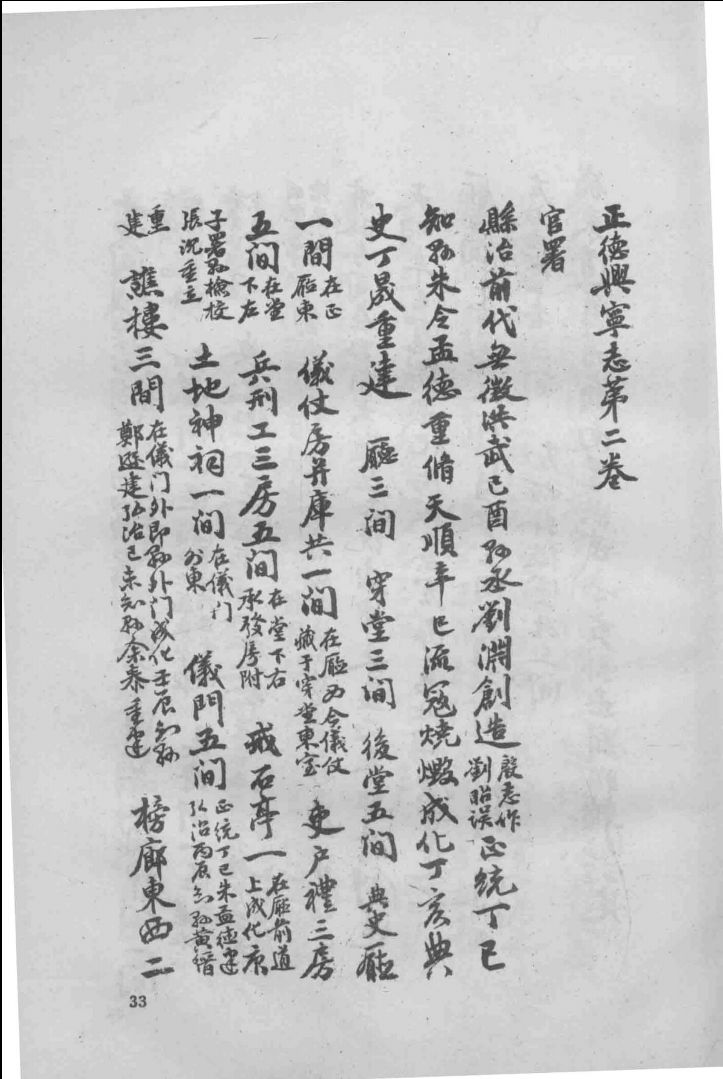 正德興寧志第二卷
官署
縣治前代無徵洪武己酉縣丞劉淵創造舊志作劉昭误正統丁巳
知縣朱令孟德重脩天順辛巳流寇燒燬成化丁亥典
史丁晟重建　廳三间　穿堂三间　後堂五间　典史廳
一間在正廳東　儀仗房并庫共一间在廳西今儀仗藏于穿堂東室　吏户禮三房
五间在堂下左　兵刑工三房五间在堂下右承發房附　戒石亭一在廳前道上成化庚
子署縣檢校張沉重立　土地神祠一间在儀门外東　儀門五间正統丁巳朱孟德建弘治丙辰知縣黄缙
重建　譙樓三間在儀门外即縣外门成化壬辰知縣鄭建弘治己未知縣余泰重建　榜廊東西二
33